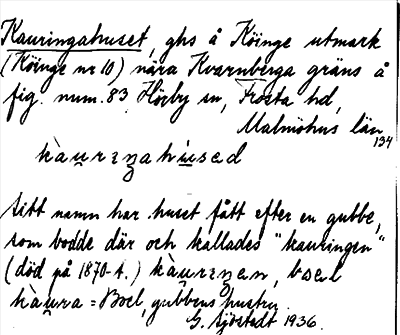 Kauringahuset, ghs å Köinge utmark
(Köinge nr 10) nära Kvarnberga gräns å
fig. num. 83 Hörby sn, Frosta hd,
Malmöhus län
134
kàu̯rɪŋahu̇sed
Sitt namn har huset fått efter en gubbe,
som bodde där och kallades "kauringen"
(död på 1870-t.) kàu̯rɪŋen, boel
kàu̯ra = Boel, gubbens hustru.
G. Sjöstedt 1936.